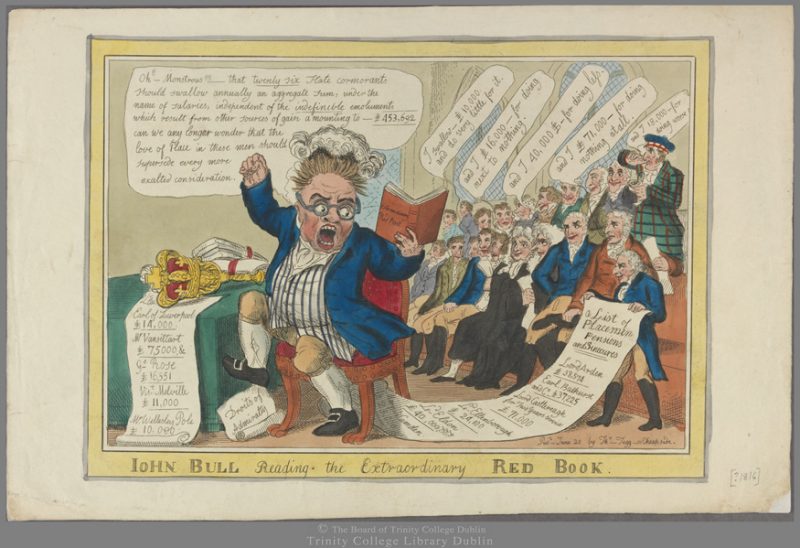 Oh - Monstrous - that twenty six State cormorants
should swallow annually an aggregate Sum; under the
name of salaries, independent of the indefinible emoluments
which result from other sources of gain amounting to - £453,692
can we any longer wonder that the
love of Place in these men should
supersede every more
exalted consideration.
I swallow - £10,000
and do very little for it.
and I £15,000 - for doing
next to nothing -
and I 40,000 £ - for doing less.
and I £71,000 - for doing
nothing at all.
and I 18,000 - for
Earl of Liverpool
£14,000
Mr Vansittart
£75000,&
G. Rose
Melville
£11,000
Mr Wellesley Pole
£10,000
Droits of
Admiralty
a List of
Placemen
Pensions
and Sinecures
Lord Arden
£38,574
Earl Bathurst
Lord Castlereagh
£71,000
Pubd June 21 by Thos Tegg - Cheapside.
IOHN BULL Reading the Extraordinary RED BOOK.
[?1816]
© The Board of Trinity College Dublin
Trinity College Library Dublin